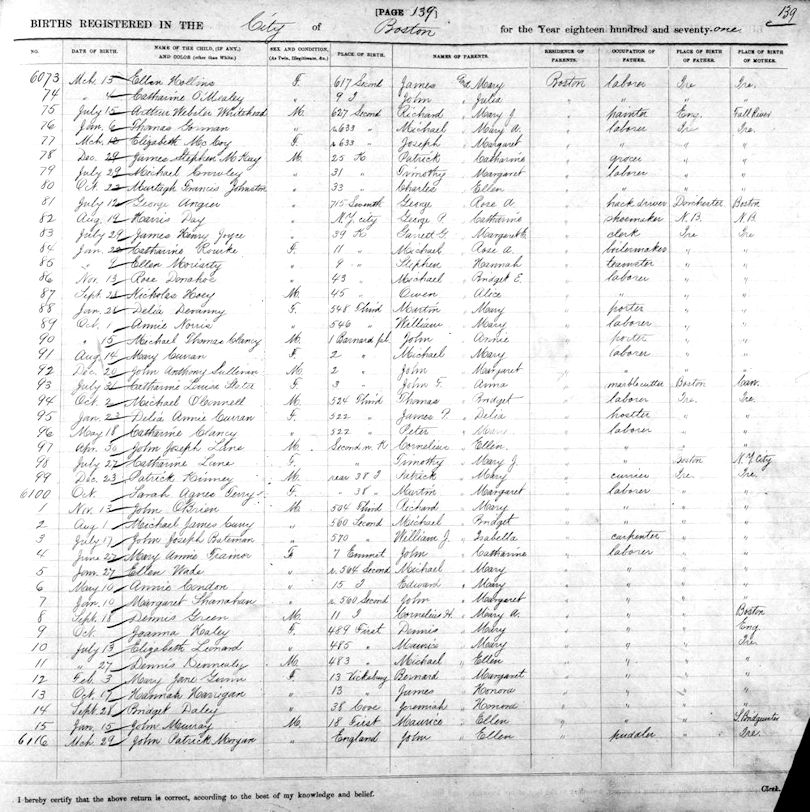 [PAGE 139]
139
BIRTHS REGISTERED IN THE City of Boston for the Year eighteen hundred and seventy-one.
NO. DATE OF BIRTH. NAME OF THE CHILD, (IF ANY,) AND COLOR (other than White). SEX AND CONDITION, (As Twin, Illegitimate, &c.) PLACE OF BIRTH. NAMES OF PARENTS. RESIDENCE OF PARENTS. OCCUPATION OF FATHER. PLACE OF BIRTH OF FATHER. PLACE OF BIRTH OF MOTHER.
6073 Mch. 15 Ellen Hollins F. 617 Second James & Mary Boston laborer Ire. Ire.
74 " 4 Catharine O'Mealey " 9 I John " Julia " " " "
75 July 15 Arthur Webster Whitehead M. 627 Second Richard " Mary J. " painter Eng. Fall River
76 Jan. 6 Thomas Gorman " r 633 " Michael " Mary A. " laborer Ire Ire.
77 Mch. Elizabeth McCoy F. r 633 " Joseph " Margaret " " " "
78 Dec. 29 James Stephen McKay M. 25 K Patrick " Catharine " grocer " "
79 July 29 Michael " 31 " Timothy " Margaret " laborer " "
80 Oct. 22 Murtagh Francis Johnston " 33 " Charles " Ellen " " " "
81 July 12 George Angier " 715 Seventh George " Rose A " hack driver Dorchester Boston
82 Aug. 19 Harris Day " N.Y. city George P. " Catharine " shoemaker N.B. N.B.
83 July 29 James Henry Joyce " 39 K Garrett G. " Margaret E. " clerk Ire Ire
84 Jan. 28 Catharine Rourke F. 11 " Michael " Rose A. " boilermaker " "
85 " 9 Ellen Moriarty " 9 " Stephen " Hannah " teamster " "
86 Nov. 13 Rose Donahoe " 43 " Michael " Bridget E. " laborer " "
87 Sept. 21 Nicholas Hoey M. 45 " Owen " Alice " " " "
88 Jan. 26 Delia Devanny F. 548 Third Martin " Mary " porter " "
89 Oct. 1 Annie Norris " 546 " William " Mary " laborer " "
90 " 15 Michael Thomas Clancy M. 1 Barnard pl. John " Annie " porter " "
91 Aug. 14 Mary Curran F. 2 " Michael " Mary " laborer " "
92 Dec. 20 John Anthony Sullivan M. 2 " John " Margaret " " " "
93 July 31 Catharine Louisa F. 3 " John F. " Anna " marblecutter Boston Can.
94 Oct. 2 Michael O'Connell M. 524 Third Thomas " Bridget " laborer Ire. Ire.
95 Jan. 23 Delia Annie Curran F. 522 " James P. " Delia " hostler " "
96 May 18 Catharine Clancy " 522 " Peter " Mary " laborer " "
97 Apr. 30 John Joseph Lane M. Second n. K Cornelius " Ellen " " " "
98 July 27 Catharine Lane F. " Timothy " Mary J. " " Boston N.Y. City
99 Dec. 23 Patrick Kinney M. rear 38 I Patrick " Mary " currier Ire. Ire.
6100 Oct. Sarah Agnes Terry F. " 38 " Martin " Margaret " laborer " "
1 Nov. 13 John O'Brien M. 504 Third Richard " Mary " " " "
2 Aug. 1 Michael James Curry " 560 Second Michael " Bridget " " " "
3 July 17 John Joseph Bateman " 570 " William J. " Isabella " carpenter " "
4 June 27 Mary Annie Trainor F 7 Emmet John " Catharine " laborer " "
5 Jan. 27 Ellen Wade " r. 564 Second Michael " Mary " " " "
6 May 10 Annie Condon " 15 I Edward " Mary " " " "
7 Jan. 19 Margaret Shanahan " r. 560 Second John " Margaret " " " "
8 Sept. 18 Dennis Green M. 11 I Cornelius H. " Mary A. " " " Boston
9 Oct. Joanna Haley F. 489 First Dennis " Mary " " " Eng.
10 July 13 Elizabeth Leonard " 485 " Maurice " Mary " " " Ire.
11 " 27 Dennis Dennealy M. 483 " Michael " Ellen " " " "
12 Feb. 3 Mary Jane Gunn F 13 Vicksburg Bernard " Margaret " " " "
13 Oct. 17 Hannah Harrigan " 13 " James " Honora " " " "
14 Sept. 28 Bridget Daley " 38 Cove Jeremiah " Honora " " " "
15 Jan. 15 John Murray M. 18 First Maurice " Ellen " " " S. Bridgewater
6116 Mch. 29 John Patrick Morgan " England John " Ellen " pudaler " Ire.
I hereby certify that the above return is correct, according to the best of my knowledge and belief.
Clerk.